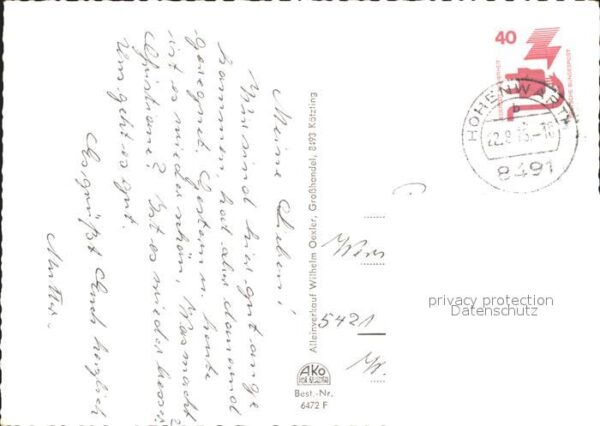 Meine Lieben!
Wir sind hier gut ange
kommen, hat aber dauernd
geregnet. Gestern u. heute
ist es wieder schön, Was macht
Christiane? Ist es wieder besser?
Uns geht es gut.
Es grüßt Euch herzlich
Mutter.
Alleinverkauf Wilhelm Oexler, Großhandel, 8493 Kötzting
AKO
Best.-Nr.
6472 F
40
DEUTSCHE BUNDESPOST
HOHENWARTH
b
8491
5421
privacy protection
Datenschutz